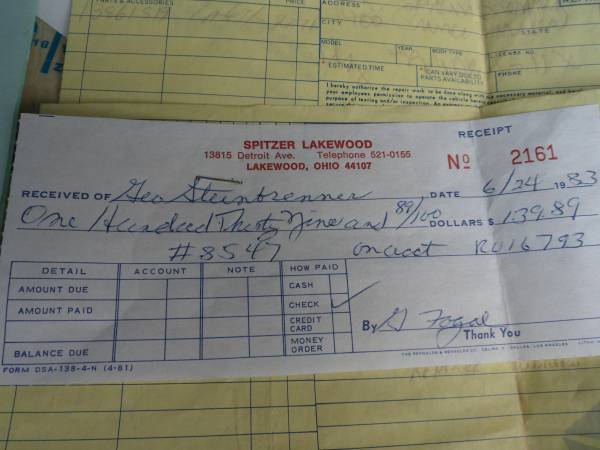 PARTS & ACCESSORIES PRICE
ADDRESS
CITY STATE
MODEL YEAR BODY TYPE LICENSE NO.
* ESTIMATED TIME * CAN VARY DUE TO PARTS AVAILABILITY PHONE
I hereby authorize the repair work to be done along with necessary material, and
your employees permission to operate the vehicle herein
purpose of testing and/or inspection. An express
RECEIPT
SPITZER LAKEWOOD
13815 Detroit Ave. Telephone 521-0155
LAKEWOOD, OHIO 44107
No 2161
RECEIVED OF Geo Steinbrenner DATE 6/24 1983
One Hundred Thirty Nine and 89/100 DOLLARS $ 139.89
#8547 on acct RO16793
DETAIL ACCOUNT NOTE HOW PAID
AMOUNT DUE CASH
AMOUNT PAID CHECK ✓
CREDIT CARD
BALANCE DUE MONEY ORDER
By G Fogal
Thank You
FORM DSA-138-4-N (4-81)